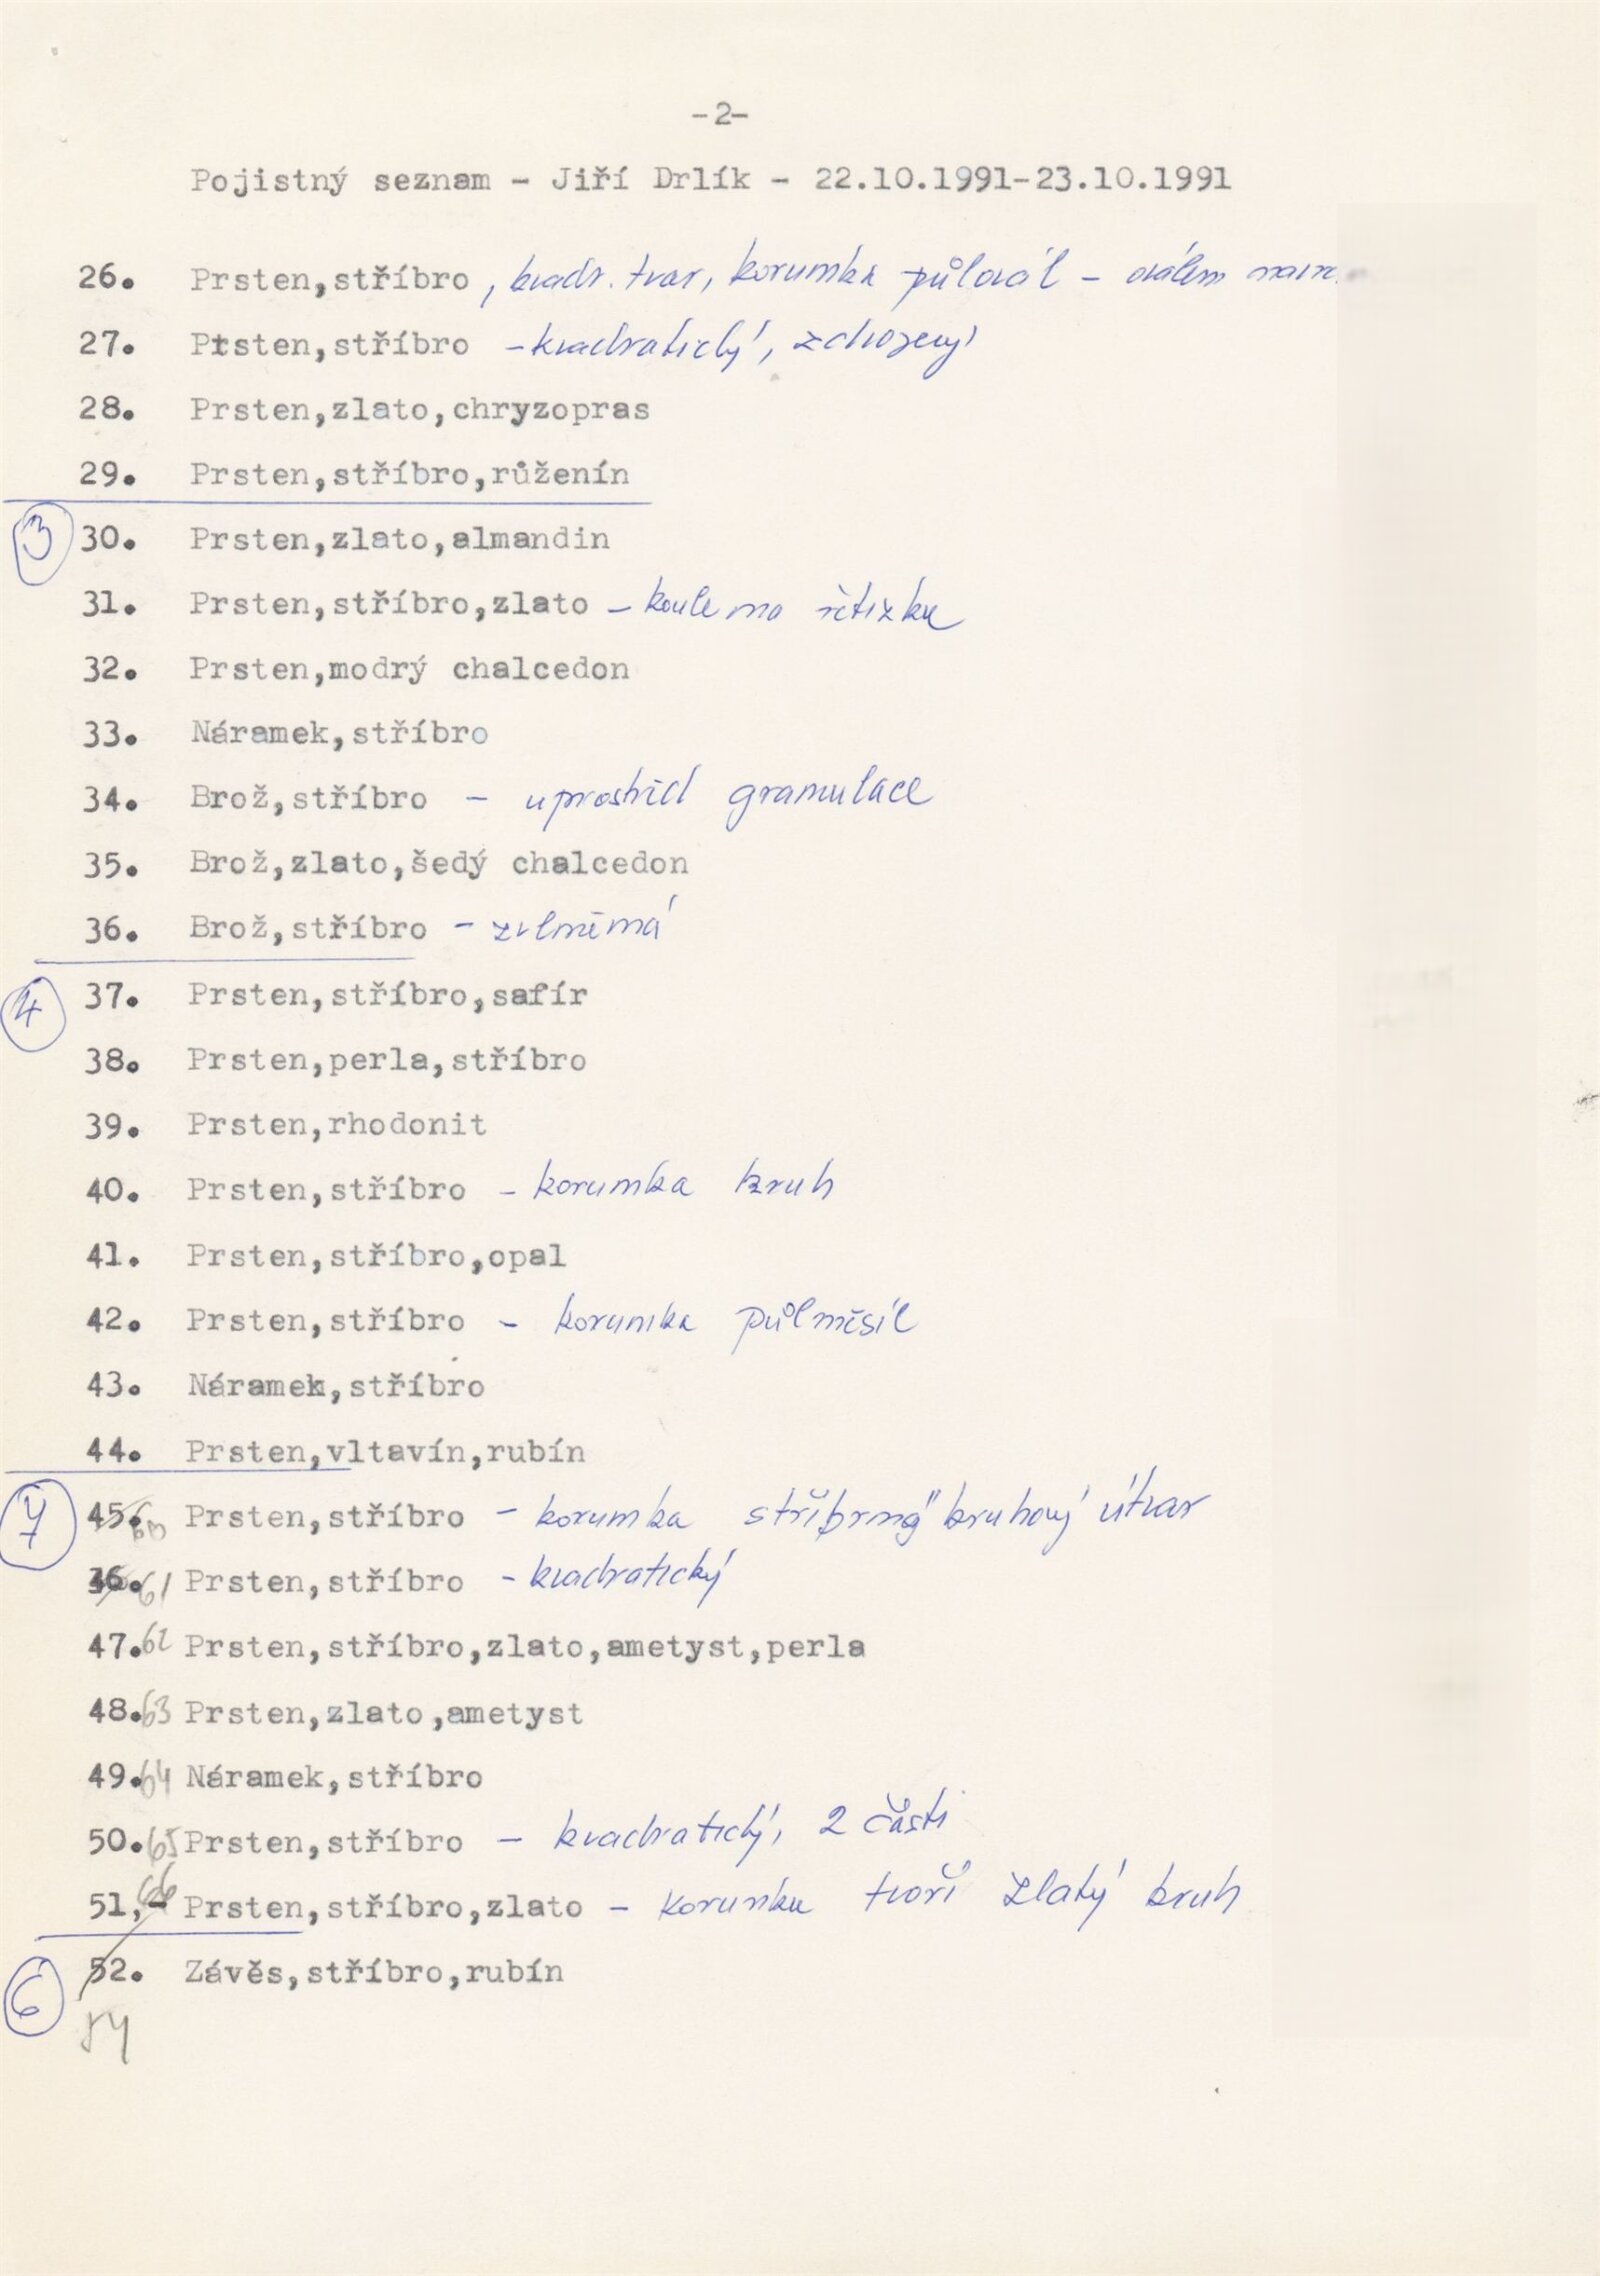 -2-
Pojistný seznam - Jiří Drlík - 22.10.1991-23.10.1991
26. Prsten,stříbro , kvadr. tvar, korunka půlovál - oválem
27. Prsten,stříbro - kvadratický, zchozený
28. Prsten,zlato,chryzopras
29. Prsten,stříbro,růženín
3 30. Prsten,zlato,almandin
31. Prsten,stříbro,zlato - koule na řetízku
32. Prsten,modrý chalcedon
33. Náramek,stříbro
34. Brož,stříbro - uprostřed granulace
35. Brož,zlato,šedý chalcedon
36. Brož,stříbro - zvlněná
4 37. Prsten,stříbro,safír
38. Prsten,perla,stříbro
39. Prsten,rhodonit
40. Prsten,stříbro - korunka kruh
41. Prsten,stříbro,opal
42. Prsten,stříbro - korunka půlměsíc
43. Náramek,stříbro
44. Prsten,vltavín,rubín
7 45. 60 Prsten,stříbro - korunka stříbrný kruhový útvar
36. 61 Prsten,stříbro - kvadratický
47. 62 Prsten,stříbro,zlato,ametyst,perla
48. 63 Prsten,zlato,ametyst
49. 64 Náramek,stříbro
50. 65 Prsten,stříbro - kvadratický, 2 části
51,- 66 Prsten,stříbro,zlato - korunku tvoří zlatý kruh
6 52. Závěs,stříbro,rubín